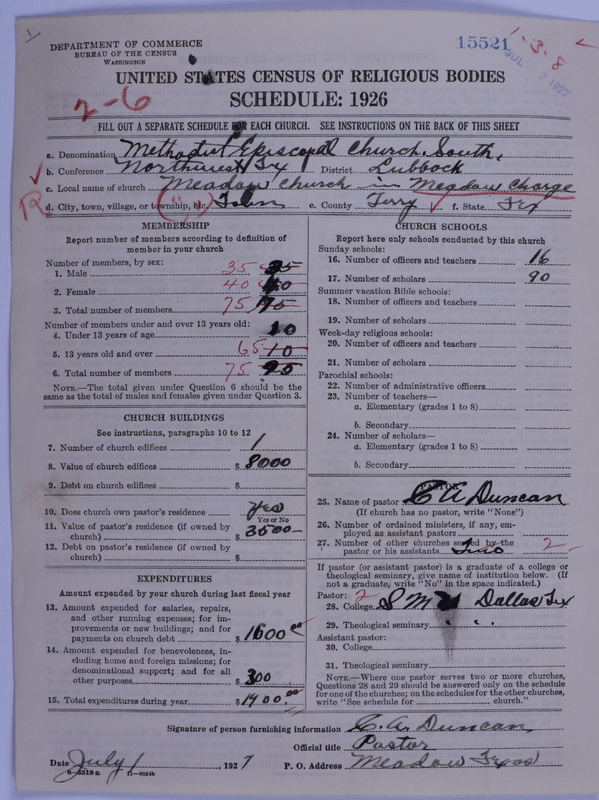 DEPARTMENT OF COMMERCE
BUREAU OF THE CENSUS
WASHINGTON
15521
1-3-8
2-6
UNITED STATES CENSUS OF RELIGIOUS BODIES
SCHEDULE: 1926
FILL OUT A SEPARATE SCHEDULE FOR EACH CHURCH. SEE INSTRUCTIONS ON THE BACK OF THIS SHEET
a. Denomination Methodist Episcopal Church. South,
b. Conference Northwest Tex District Lubbock
c. Local name of church Meadow Church in Meadow Charge
R
d. City, town, village, or township, etc. Town e. County Terry f. State Tex
MEMBERSHIP
Report number of members according to definition of
member in your church
Number of members, by sex:
1. Male 35
2. Female 40 40
3. Total number of members 75
Number of members under and over 13 years old:
4. Under 13 years of age 10
5. 13 years old and over 65 10
6. Total number of members 75
NOTE.—The total given under Question 6 should be the
same as the total of males and females given under Question 3.
CHURCH BUILDINGS
See instructions, paragraphs 10 to 12
7. Number of church edifices 1
8. Value of church edifices $ 8000
9. Debt on church edifices $
10. Does church own pastor's residence yes
Yes or No
11. Value of pastor's residence (if owned by
church) $ 3500
12. Debt on pastor's residence (if owned by
church) $
EXPENDITURES
Amount expended by your church during last fiscal year
13. Amount expended for salaries, repairs,
and other running expenses; for im-
provements or new buildings; and for
payments on church debt $ 1600
14. Amount expended for benevolences, in-
cluding home and foreign missions; for
denominational support; and for all
other purposes $ 300
15. Total expenditures during year $ 1900.00
CHURCH SCHOOLS
Report here only schools conducted by this church
Sunday schools:
16. Number of officers and teachers 16
17. Number of scholars 90
Summer vacation Bible schools:
18. Number of officers and teachers
19. Number of scholars
Week-day religious schools:
20. Number of officers and teachers
21. Number of scholars
Parochial schools:
22. Number of administrative officers
23. Number of teachers—
a. Elementary (grades 1 to 8)
b. Secondary
24. Number of scholars—
a. Elementary (grades 1 to 8)
b. Secondary
PASTOR
25. Name of pastor C A Duncan
(If church has no pastor, write "None")
26. Number of ordained ministers, if any, em-
ployed as assistant pastors
27. Number of other churches served by the
pastor or his assistants Two 2
If pastor (or assistant pastor) is a graduate of a college or
theological seminary, give name of institution below. (If
not a graduate, write "No" in the space indicated.)
Pastor: 2
28. College S M U Dallas Tex
29. Theological seminary " "
Assistant pastor:
30. College
31. Theological seminary
NOTE.—Where one pastor serves two or more churches,
Questions 28 and 29 should be answered only on the schedule
for one of the churches; on the schedules for the other churches,
write "See schedule for church."
Signature of person furnishing information C. A. Duncan
Official title Pastor
Date July 1, 1927 P. O. Address Meadow Texas
8-5518 a 11-9024b